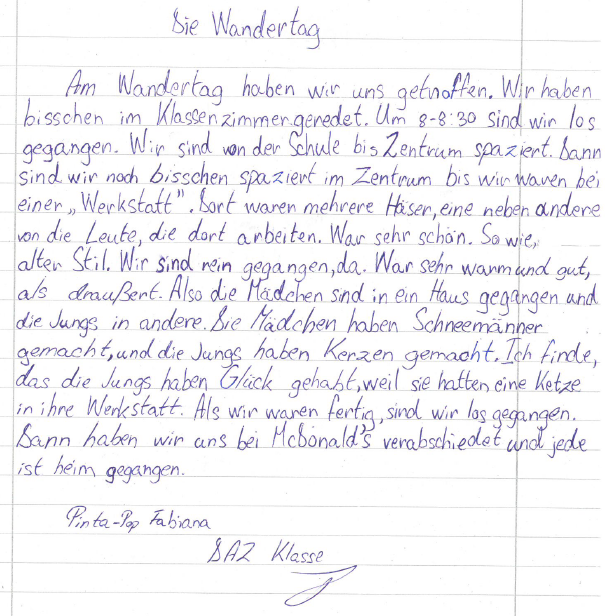 Die Wandertag
Am Wandertag haben wir uns getroffen. Wir haben
bisschen im Klassenzimmer geredet. Um 8-8:30 sind wir los
gegangen. Wir sind von der Schule bis Zentrum spaziert. Dann
sind wir noch bisschen spaziert im Zentrum bis wir waren bei
einer „Werkstatt". Dort waren mehrere Häser, eine neben andere
von die Leute, die dort arbeiten. War sehr schön. So wie,
alter Stil. Wir sind rein gegangen, da. War sehr warm und gut,
als draußert. Also die Mädchen sind in ein Haus gegangen und
die Jungs in andere. Die Mädchen haben Schneemänner
gemacht, und die Jungs haben Kerzen gemacht. Ich finde,
das die Jungs haben Glück gehabt, weil sie hatten eine Ketze
in ihre Werkstatt. Als wir waren fertig, sind wir los gegangen.
Dann haben wir uns bei McDonald's verabschiedet und jede
ist heim gegangen.
Pinta-Pop Fabiana
DAZ Klasse